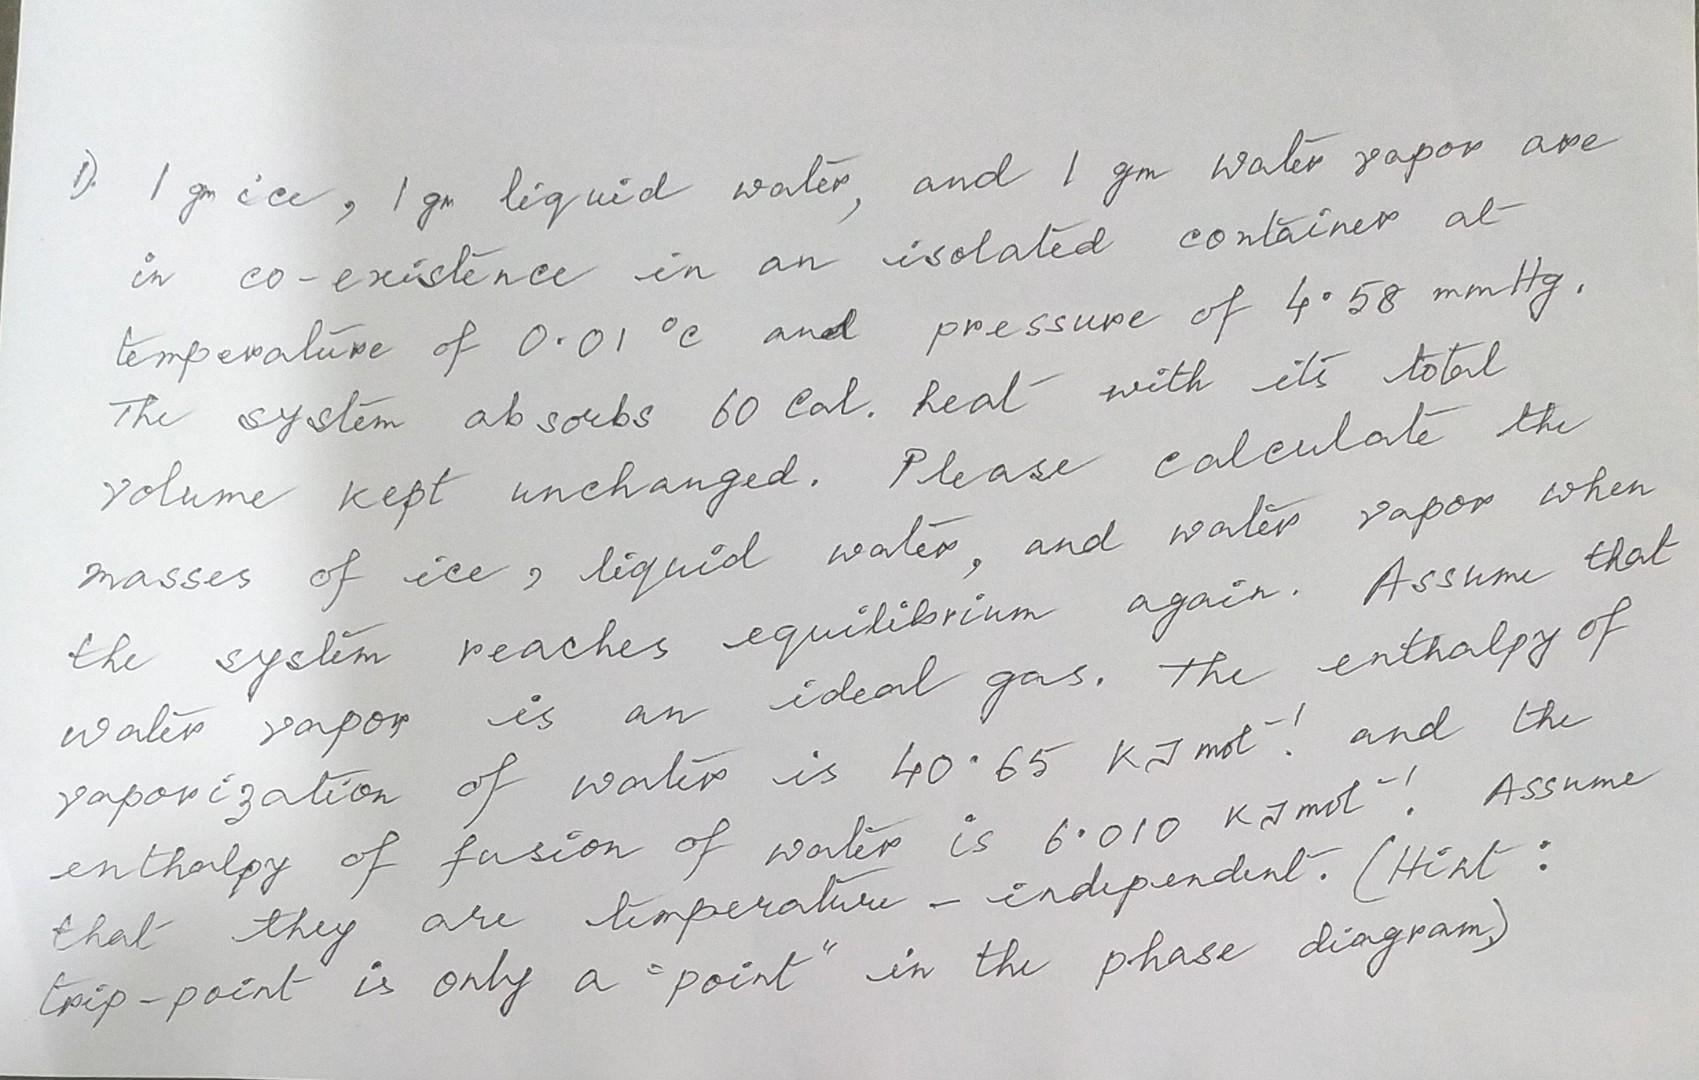 1). 1 gm ice, 1 gm liquid water, and 1 gm water vapor are
in co-existence in an isolated container at
temperature of 0.01 °C and pressure of 4.58 mmHg.
The system absorbs 60 Cal. heat with its total
volume kept unchanged. Please calculate the
masses of ice, liquid water, and water vapor when
the system reaches equilibrium again. Assume that
water vapor is an ideal gas. The enthalpy of
vaporization of water is 40.65 KJ mol⁻¹. and the
enthalpy of fusion of water is 6.010 KJ mol⁻¹. Assume
that they are temperature-independent. (Hint:
trip-point is only a "point" in the phase diagram)